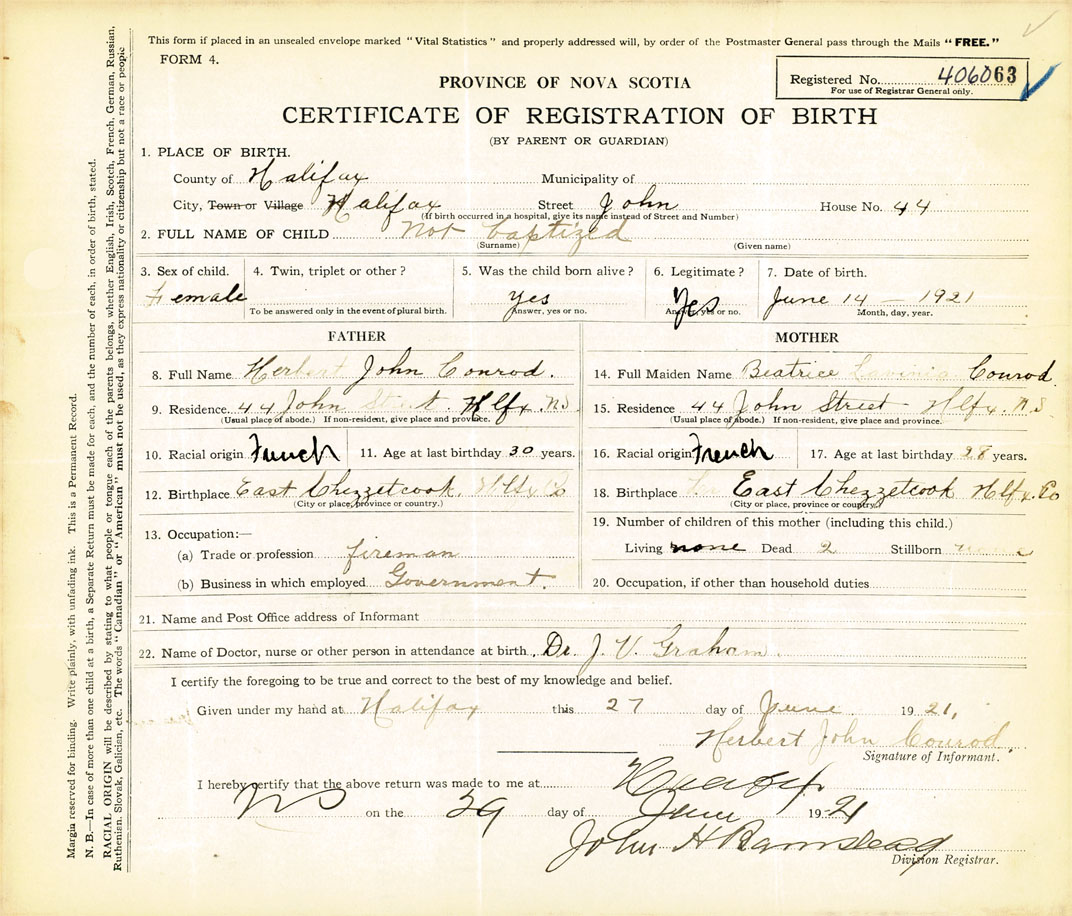 This form if placed in an unsealed envelope marked "Vital Statistics" and properly addressed will, by order of the Postmaster General pass through the Mails "FREE."
FORM 4.
PROVINCE OF NOVA SCOTIA
Registered No. 406063
For use of Registrar General only.
CERTIFICATE OF REGISTRATION OF BIRTH
(BY PARENT OR GUARDIAN)
1. PLACE OF BIRTH.
County of Halifax Municipality of
City, Town or Village Halifax Street John House No. 44
(If birth occurred in a hospital, give its name instead of Street and Number)
2. FULL NAME OF CHILD Not baptized
(Surname) (Given name)
3. Sex of child. 4. Twin, triplet or other? 5. Was the child born alive? 6. Legitimate? 7. Date of birth.
Female yes Yes June 14 - 1921
To be answered only in the event of plural birth. Answer, yes or no. Answer, yes or no. Month, day, year.
FATHER
8. Full Name Herbert John Conrod.
9. Residence 44 John Street Hlfx. N.S.
(Usual place of abode.) If non-resident, give place and province.
10. Racial origin French 11. Age at last birthday 30 years.
12. Birthplace East Chezzetcook. Hlfx Co
(City or place, province or country.)
13. Occupation:—
(a) Trade or profession fireman
(b) Business in which employed Government.
MOTHER
14. Full Maiden Name Beatrice Lavinia Conrod
15. Residence 44 John Street - Hlfx. N.S.
(Usual place of abode.) If non-resident, give place and province.
16. Racial origin French 17. Age at last birthday 28 years.
18. Birthplace East Chezzetcook Hlfx. Co
(City or place, province or country.)
19. Number of children of this mother (including this child.)
Living none Dead 2 Stillborn none
20. Occupation, if other than household duties
21. Name and Post Office address of Informant
22. Name of Doctor, nurse or other person in attendance at birth. Dr. J. V. Graham.
I certify the foregoing to be true and correct to the best of my knowledge and belief.
Given under my hand at Halifax this 27 day of June 1921,
Herbert John Conrod.
Signature of Informant.
I hereby certify that the above return was made to me at Halifax
NS on the 29 day of June 1921
John H Barnstead
Division Registrar.
Margin reserved for binding. Write plainly, with unfading ink. This is a Permanent Record.
N. B.—In case of more than one child at a birth, a Separate Return must be made for each, and the number of each, in order of birth, stated.
RACIAL ORIGIN will be described by stating to what people or tongue each of the parents belongs, whether English, Irish, Scotch, French, German, Russian,
Ruthenian, Slovak, Galician, etc. The words "Canadian" or "American" must not be used, as they express nationality or citizenship but not a race or people